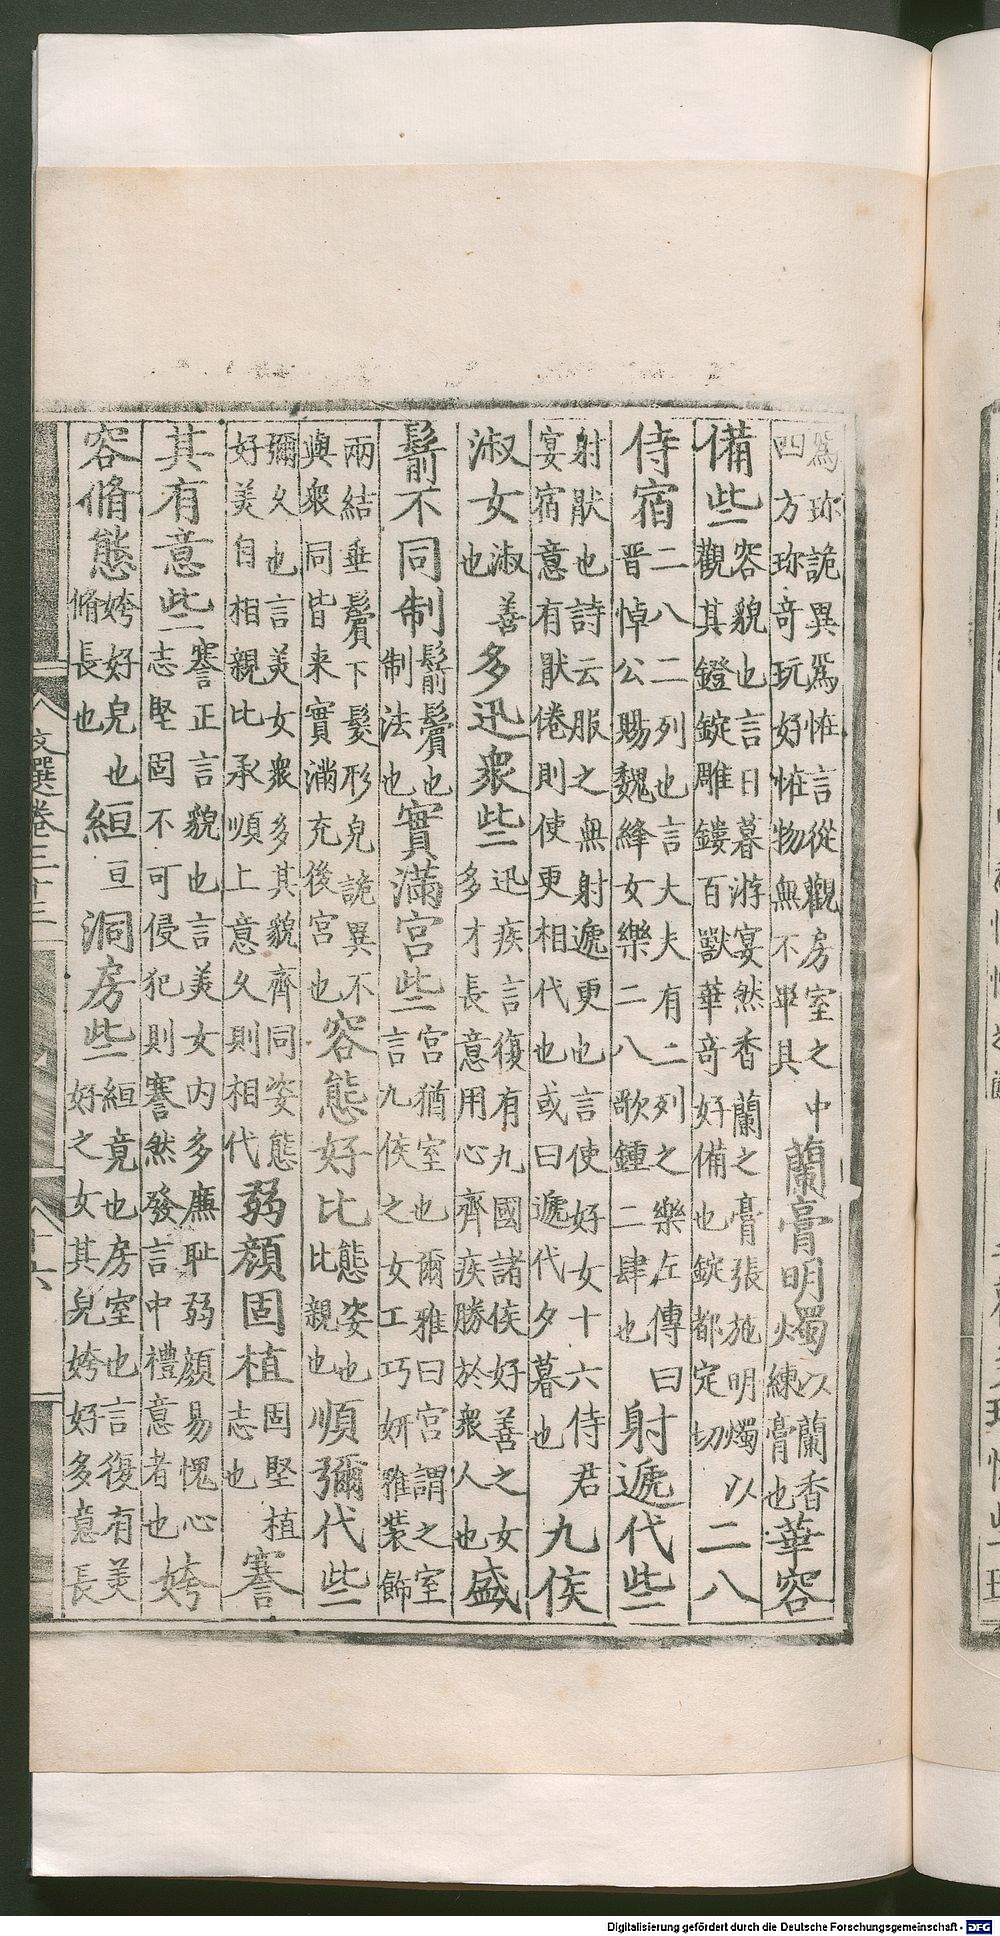 爲珎詭異爲恠言從觀房室之中
四方珎奇玩好恠物無不畢具
蘭膏明燭以蘭香
練膏也
華容
備些容貌也言日暮游宴然香蘭之膏張施明燭以
觀其鐙錠雕鏤百獸華奇好備也錠都定切
二八
侍宿二八二列也言大夫有二列之樂左傳曰
晋悼公賜魏絳女樂二八歌鍾二肆也
射遞代些
射猒也詩云服之無射遞更也言使好女十六侍君
宴宿意有猒倦則使更相代也或曰遞代夕暮也
九侯
淑女淑善
也
多迅衆些迅疾言復有九國諸侯好善之女
多才長意用心齊疾勝於衆人也
盛
鬋不同制鬋鬢也
制法也
實滿宫些宫猶室也爾雅曰宫謂之室
言九侯之女工巧妍雅裝飾
兩結垂鬢下髮形皃詭異不
與衆同皆来實滿充後宫也
容態好比態姿也
比親也
順彌代些
彌久也言美女衆多其貌齊同姿態
好美自相親比承順上意久則相代
弱顏固植固堅植
志也
謇
其有意些謇正言貌也言美女内多廉耻弱顏易愧心
志堅固不可侵犯則謇然發言中禮意者也
姱
容脩態姱好皃也
脩長也
絙亘洞房些絙竟也房室也言復有美
好之女其皃姱好多意長
文選卷三十三
十六
Digitalisierung gefördert durch die Deutsche Forschungsgemeinschaft - DFG